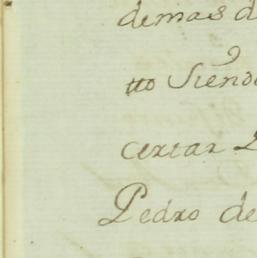 demas d
tto Siend
cercar
Pedro de